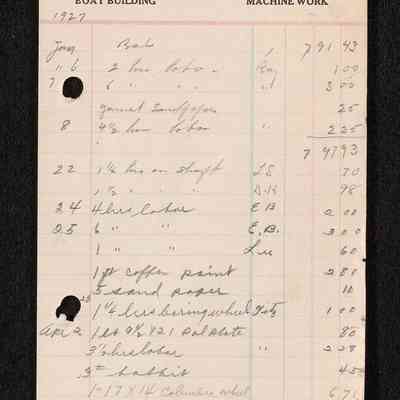 BOAT BUILDING MACHINE WORK
1927
Jan Bal 791 43
" 6 2 hrs labor 1 00
7 6 " " " 3 00
garnet sandpaper 25
8 4½ hours labor " 2 25
7 97 93
22 1¼ hrs on shaft 70
1½ " " " 98
24 4 hrs labor E B 2 00
25 6 " " E.B. 3 00
1 " " Lu 60
1 pt copper paint 2 80
5 sand paper 10
1¼ hrs boring wheel Fitz 1 00
Apr 2 1 9½ X 21
3½ hrs labor " 2 28
3# babbit 45
1 - 17 X 14 Columbia wheel 6 71